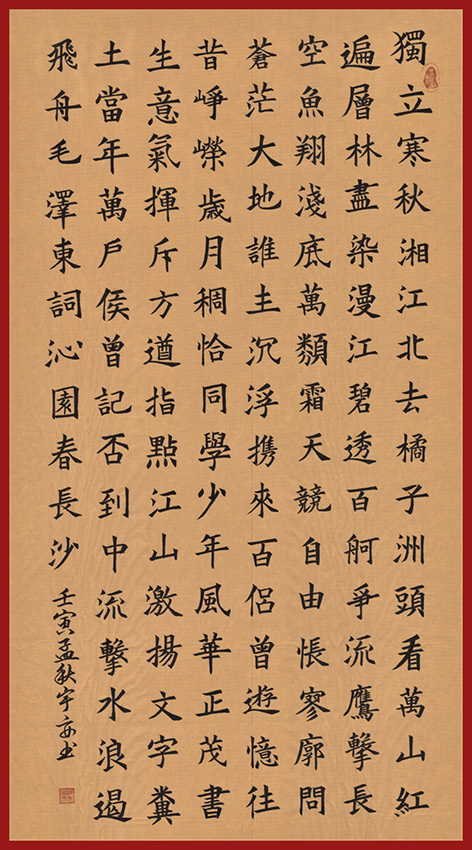 獨立寒秋湘江北去橘子洲頭看萬山紅
遍層林盡染漫江碧透百舸爭流鷹擊長
空魚翔淺底萬類霜天競自由悵寥廓問
蒼茫大地誰主沉浮携來百侶曾遊憶往
昔崢嶸歲月稠恰同學少年風華正茂書
生意氣揮斥方遒指點江山激揚文字糞
土當年萬戶侯曾記否到中流擊水浪遏
飛舟毛澤東詞沁園春長沙 壬寅孟秋宇书